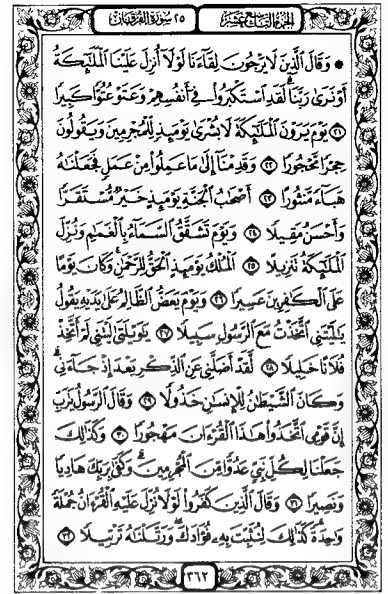 الجزء التاسع عشر ٢٥ سورة الفرقان
• وَقَالَ الَّذِينَ لَا يَرْجُونَ لِقَاءَنَا لَوْلَا أُنزِلَ عَلَيْنَا الْمَلَٰئِكَةُ
أَوْ نَرَىٰ رَبَّنَا لَقَدِ اسْتَكْبَرُوا فِي أَنفُسِهِمْ وَعَتَوْ عُتُوًّا كَبِيرًا
٢١ يَوْمَ يَرَوْنَ الْمَلَٰئِكَةَ لَا بُشْرَىٰ يَوْمَئِذٍ لِّلْمُجْرِمِينَ وَيَقُولُونَ
حِجْرًا مَّحْجُورًا ٢٢ وَقَدِمْنَا إِلَىٰ مَا عَمِلُوا مِنْ عَمَلٍ فَجَعَلْنَٰهُ
هَبَاءً مَّنثُورًا ٢٣ أَصْحَٰبُ الْجَنَّةِ يَوْمَئِذٍ خَيْرٌ مُّسْتَقَرًّا
وَأَحْسَنُ مَقِيلًا ٢٤ وَيَوْمَ تَشَقَّقُ السَّمَاءُ بِالْغَمَٰمِ وَنُزِّلَ
الْمَلَٰئِكَةُ تَنزِيلًا ٢٥ الْمُلْكُ يَوْمَئِذٍ الْحَقُّ لِلرَّحْمَٰنِ وَكَانَ يَوْمًا
عَلَى الْكَٰفِرِينَ عَسِيرًا ٢٦ وَيَوْمَ يَعَضُّ الظَّالِمُ عَلَىٰ يَدَيْهِ يَقُولُ
يَٰلَيْتَنِي اتَّخَذْتُ مَعَ الرَّسُولِ سَبِيلًا ٢٧ يَٰوَيْلَتَىٰ لَيْتَنِي لَمْ أَتَّخِذْ
فُلَانًا خَلِيلًا ٢٨ لَّقَدْ أَضَلَّنِي عَنِ الذِّكْرِ بَعْدَ إِذْ جَاءَنِي
وَكَانَ الشَّيْطَٰنُ لِلْإِنسَٰنِ خَذُولًا ٢٩ وَقَالَ الرَّسُولُ يَٰرَبِّ
إِنَّ قَوْمِي اتَّخَذُوا هَٰذَا الْقُرْءَانَ مَهْجُورًا ٣٠ وَكَذَٰلِكَ
جَعَلْنَا لِكُلِّ نَبِيٍّ عَدُوًّا مِّنَ الْمُجْرِمِينَ وَكَفَىٰ بِرَبِّكَ هَادِيًا
وَنَصِيرًا ٣١ وَقَالَ الَّذِينَ كَفَرُوا لَوْلَا نُزِّلَ عَلَيْهِ الْقُرْءَانُ جُمْلَةً
وَٰحِدَةً كَذَٰلِكَ لِنُثَبِّتَ بِهِ فُؤَادَكَ وَرَتَّلْنَٰهُ تَرْتِيلًا ٣٢
٣٦٢